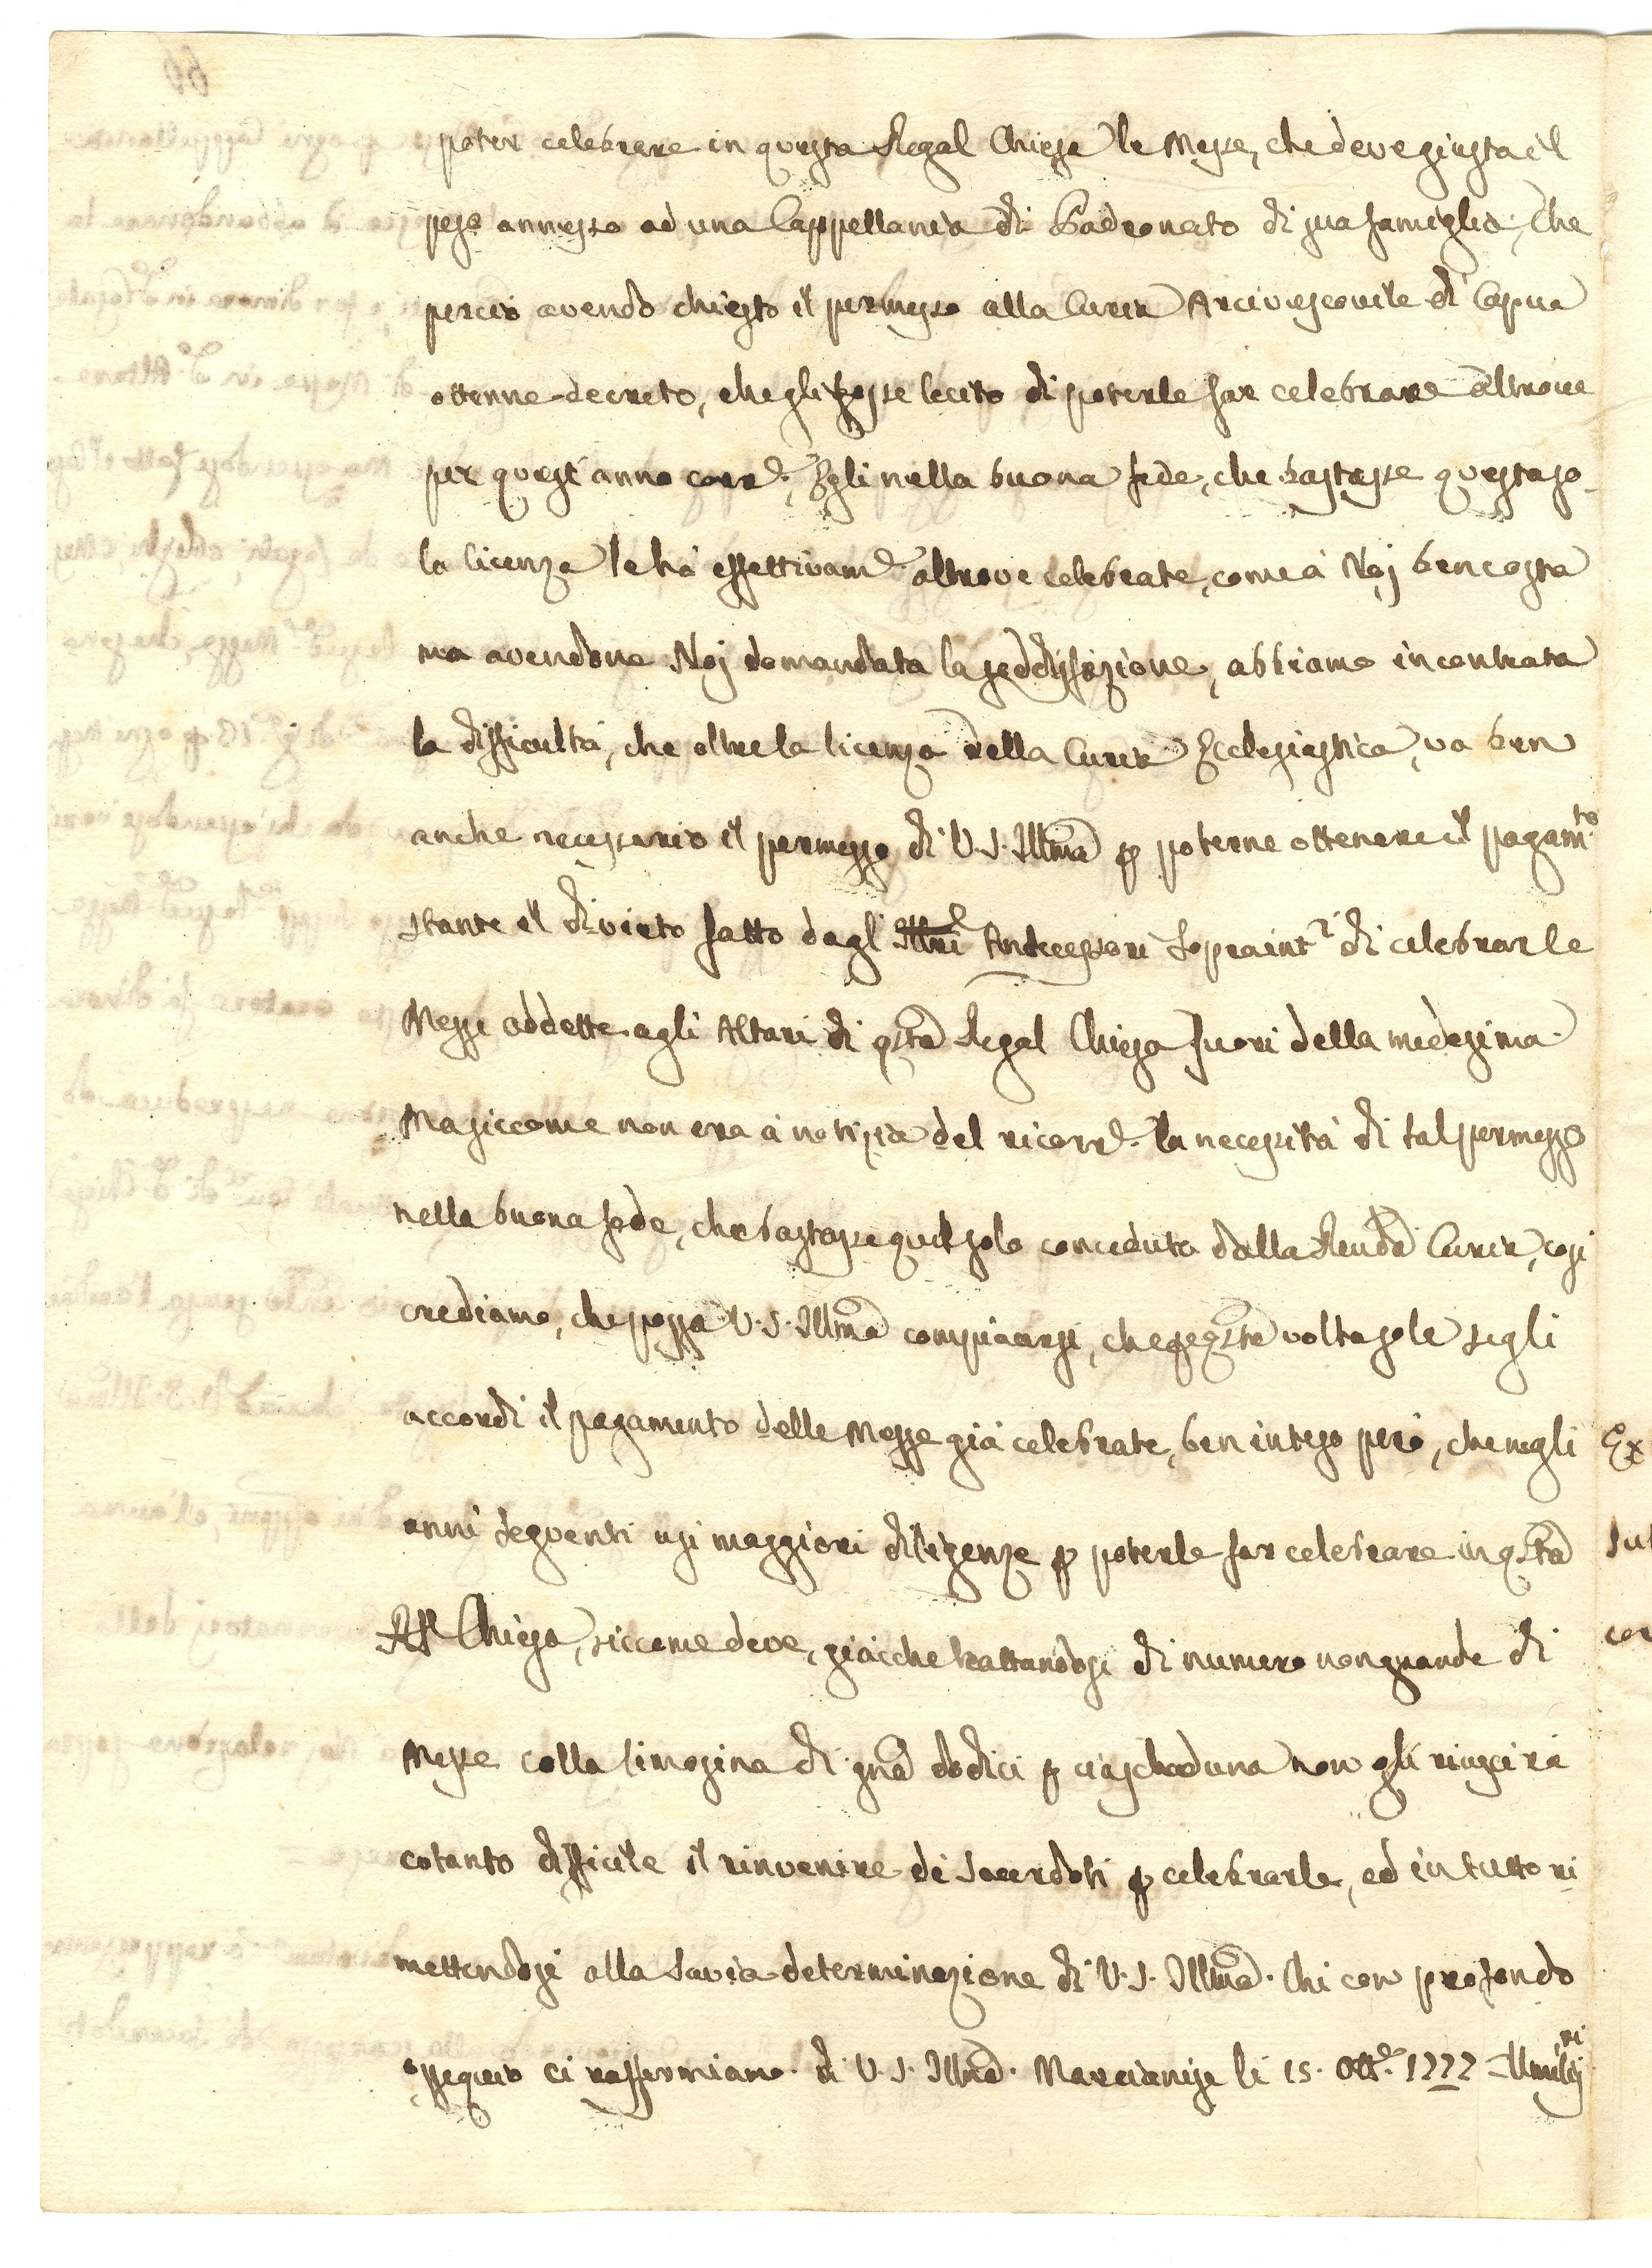 poter celebrare in questa Regal Chiesa le Messe, che deve giusta il
peso annesso ad una Cappellania di Padronato di sua famiglia; Che
perciò avendo chiesto il permesso alla Curia Arcivescovile di Capua
ottenne decreto, che gli fosse lecito di poterle far celebrare altrove
per quest'anno corr.e Egli nella buona fede, che bastasse questa so
la licenza le hà effettivam.e altrove celebrate, come à Noj ben costa
ma avendone Noj domandata la soddisfazione, abbiamo incontrata
la difficultà, che oltre la licenza della Curia Ecclesiastica, va ben
anche necessario il permesso di V. S. Illma p poterne ottenere il pagam.to
stante il divieto fatto dagl' Illri Antecessori Sopraint.i di celebrar le
Messe addette agli Altari di qsta Regal Chiesa fuori della medesima
Ma siccome non era à notizia del ricorr.e la necessità di tal permesso
nella buona fede, che bastasse quel solo conceduto dalla Reuda Curia, così
crediamo, che possa V. S. Illma compiacersi, che p qsta volta sola se gli
accordi il pagamento delle Messe già celebrate, ben inteso però, che negli
anni seguenti usi maggiori diligenze p poterle far celebrare in qsta
Rl Chiesa, siccome deve, giacche trattandosi di numero non grande di
Messe colla limosina di gna dodici p ciascheduna non gli riuscirà
cotanto difficile il rinvenire de' Sacerdoti p celebrarle, ed in tutto ri
mettendosi alla savia determinazione di V. S. Illma. Chi con profondo
ossequio ci raffermiamo. di V. S. Illma. Marcianise li 15. Ott.e 1777 =Umilsi